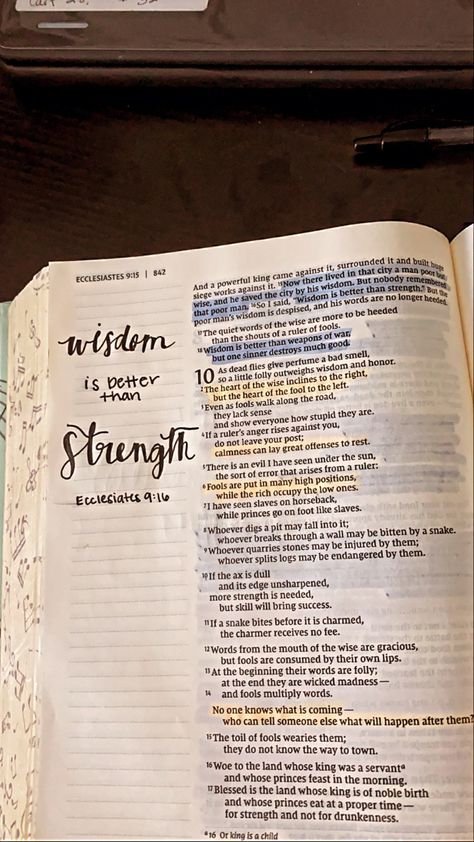 ECCLESIASTES 9:15 | 842
wisdom
is better
than
strength
Ecclesiates 9:16
And a powerful king came against it, surrounded it and built huge
siege works against it. 15Now there lived in that city a man poor but
wise, and he saved the city by his wisdom. But nobody remembered
that poor man. 16So I said, "Wisdom is better than strength." But the
poor man's wisdom is despised, and his words are no longer heeded.
17The quiet words of the wise are more to be heeded
than the shouts of a ruler of fools.
18Wisdom is better than weapons of war,
but one sinner destroys much good.
10 As dead flies give perfume a bad smell,
so a little folly outweighs wisdom and honor.
2The heart of the wise inclines to the right,
but the heart of the fool to the left.
3Even as fools walk along the road,
they lack sense
and show everyone how stupid they are.
4If a ruler's anger rises against you,
do not leave your post;
calmness can lay great offenses to rest.
5There is an evil I have seen under the sun,
the sort of error that arises from a ruler:
6Fools are put in many high positions,
while the rich occupy the low ones.
7I have seen slaves on horseback,
while princes go on foot like slaves.
8Whoever digs a pit may fall into it;
whoever breaks through a wall may be bitten by a snake.
9Whoever quarries stones may be injured by them;
whoever splits logs may be endangered by them.
10If the ax is dull
and its edge unsharpened,
more strength is needed,
but skill will bring success.
11If a snake bites before it is charmed,
the charmer receives no fee.
12Words from the mouth of the wise are gracious,
but fools are consumed by their own lips.
13At the beginning their words are folly;
at the end they are wicked madness—
14 and fools multiply words.
No one knows what is coming—
who can tell someone else what will happen after them?
15The toil of fools wearies them;
they do not know the way to town.
16Woe to the land whose king was a servanta
and whose princes feast in the morning.
17Blessed is the land whose king is of noble birth
and whose princes eat at a proper time—
for strength and not for drunkenness.
a16 Or king is a child